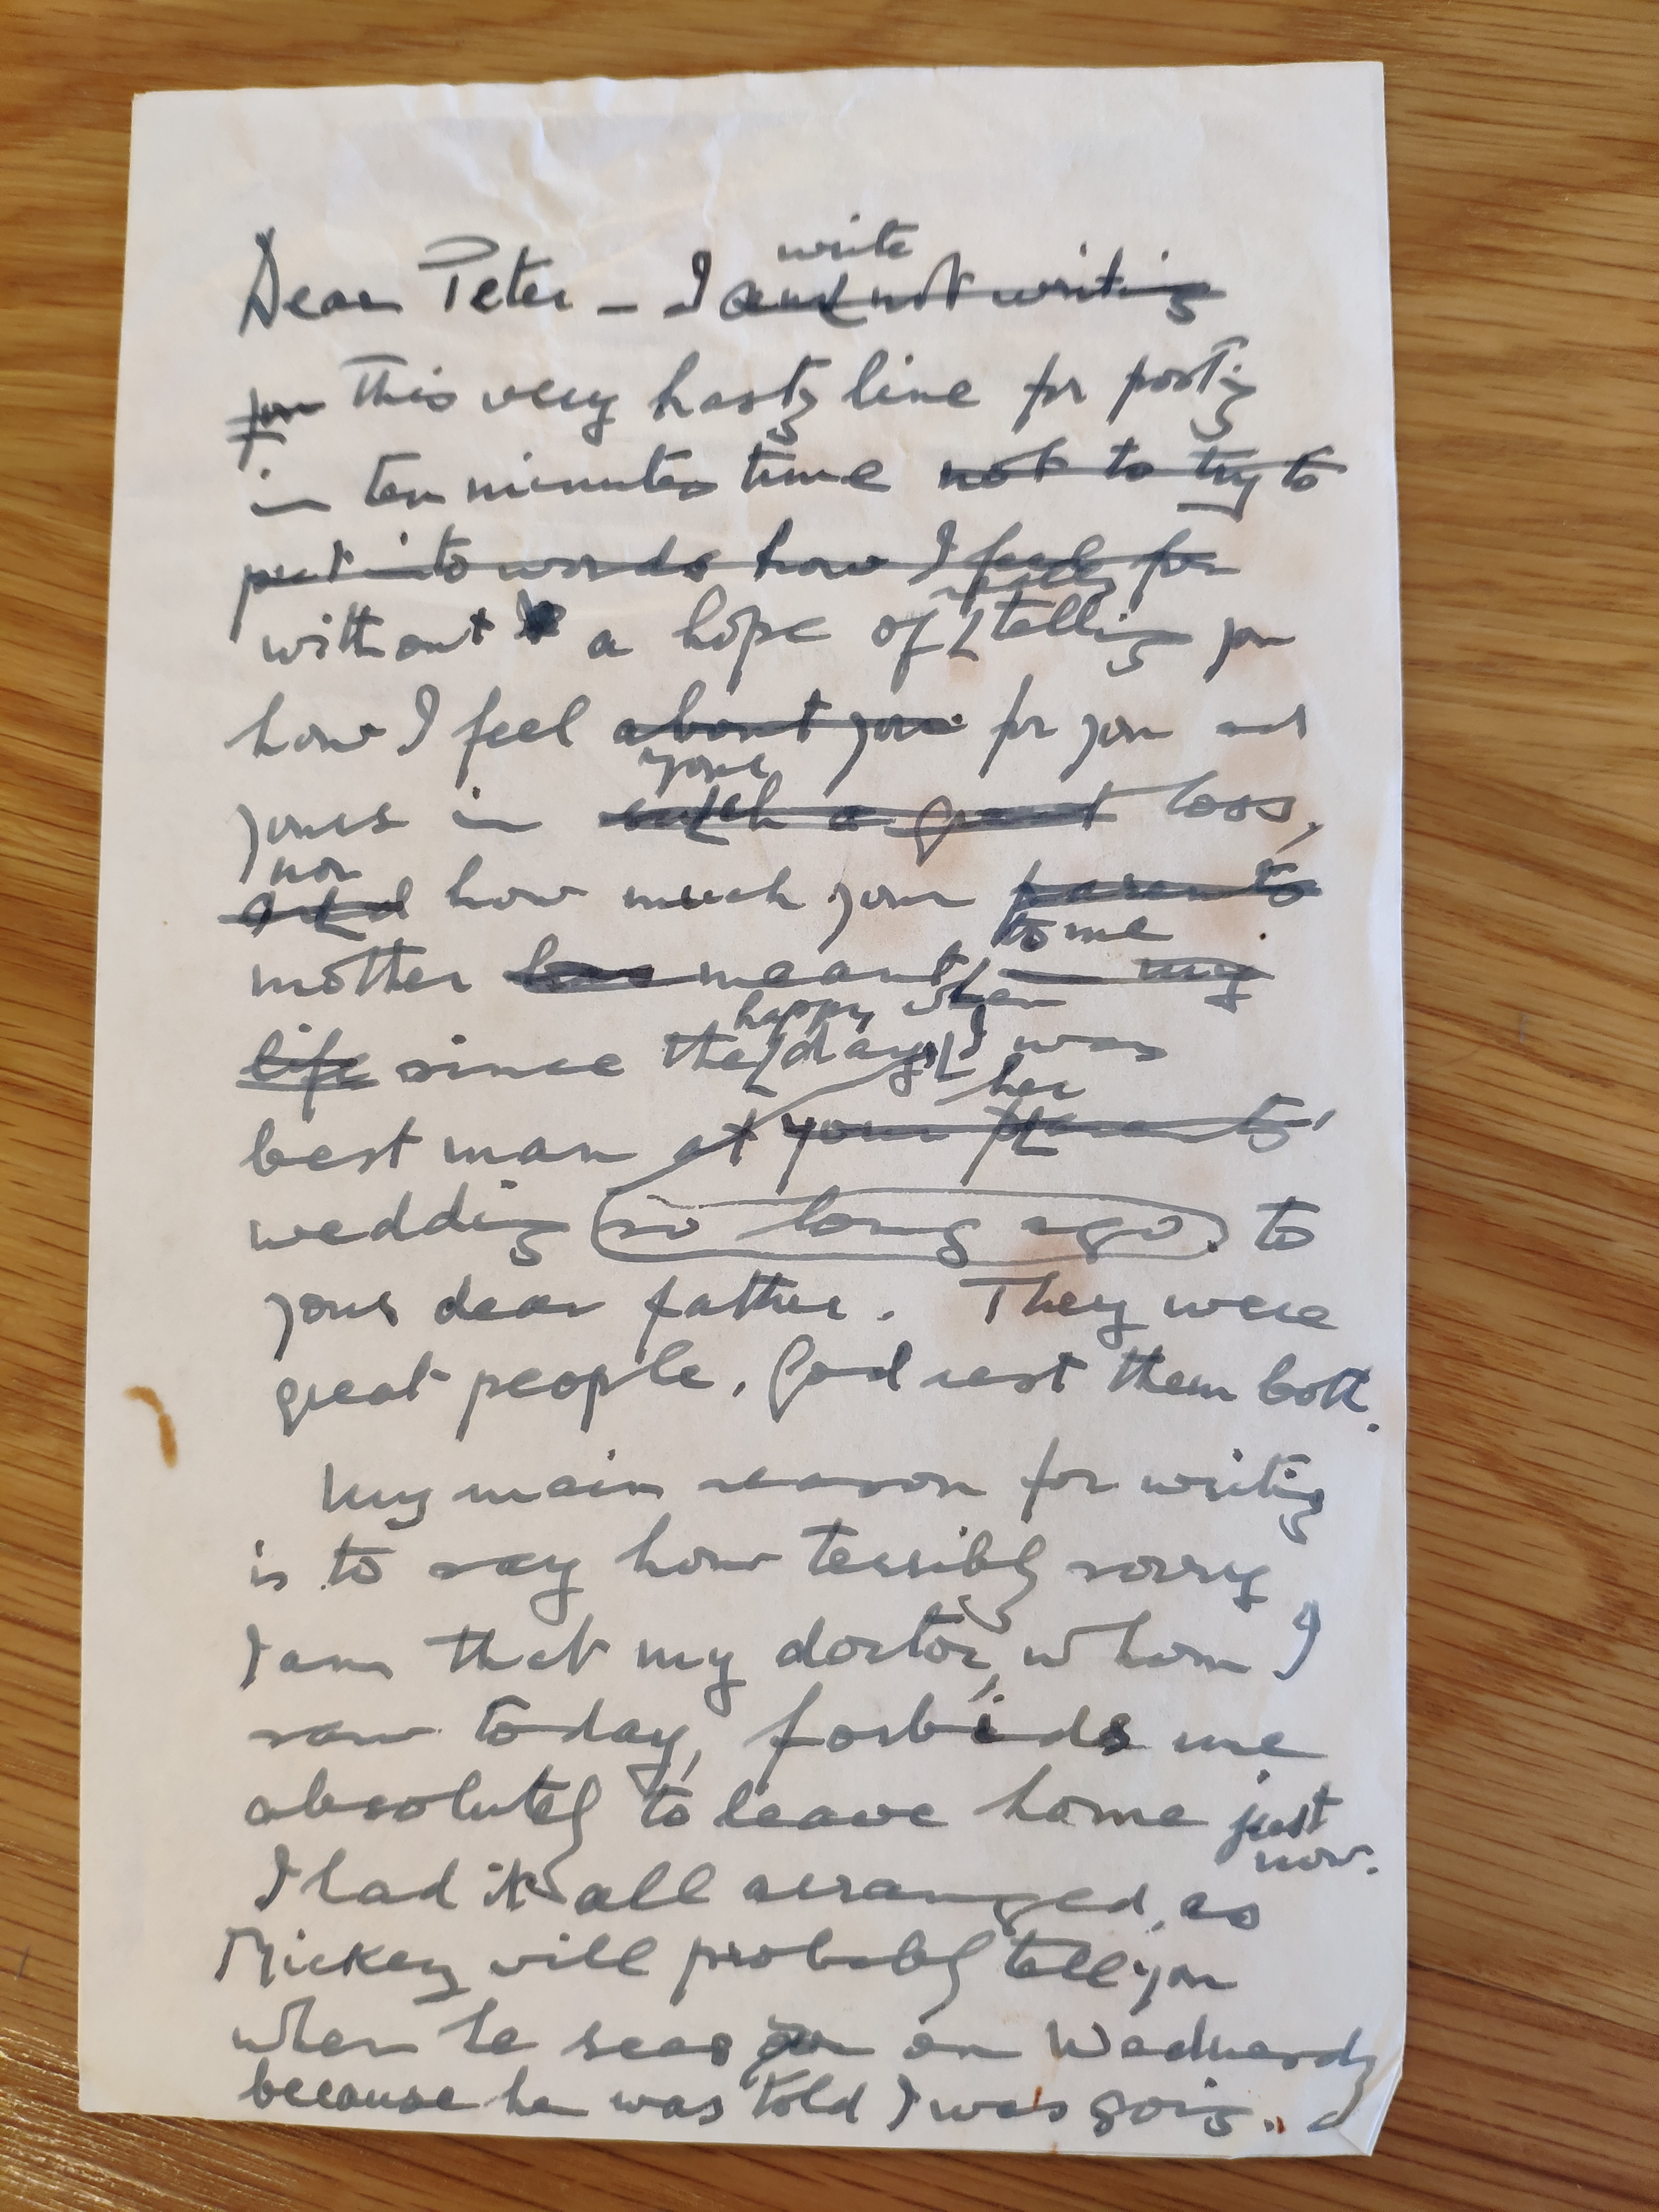 write
Dear Peter – I am not writing
you This very hasty line for posting
in ten minutes time not to try to
put into words how I feel for
really
without a hope of telling you
how I feel about you for you and
your
yours in such a great loss,
nor
and how much your parents
to me
mother has meant in my
happy when
life since the days I was
her
best man at your parents'
wedding so long ago. to
your dear father. They were
great people. God rest them both.
My main reason for writing
is to say how terribly sorry
I am that my doctor, whom I
saw today, forbids me
absolutely to leave home just
now.
I had it all arranged, as
Mickey will probably tell you
when he sees you on Wednesday
because he was told I was going.